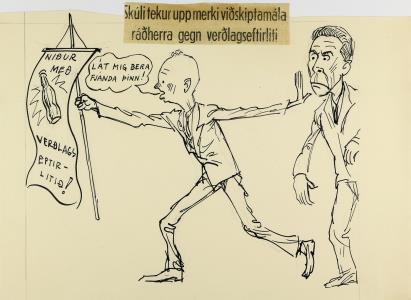 Skúli tekur upp merki viðskiptamála
ráðherra gegn verðlagseftirliti
NIÐUR
MEÐ
VERÐLAGS
EFTIR-
LITIÐ!
LÁT MIG BERA
FJANDA ÞINN!